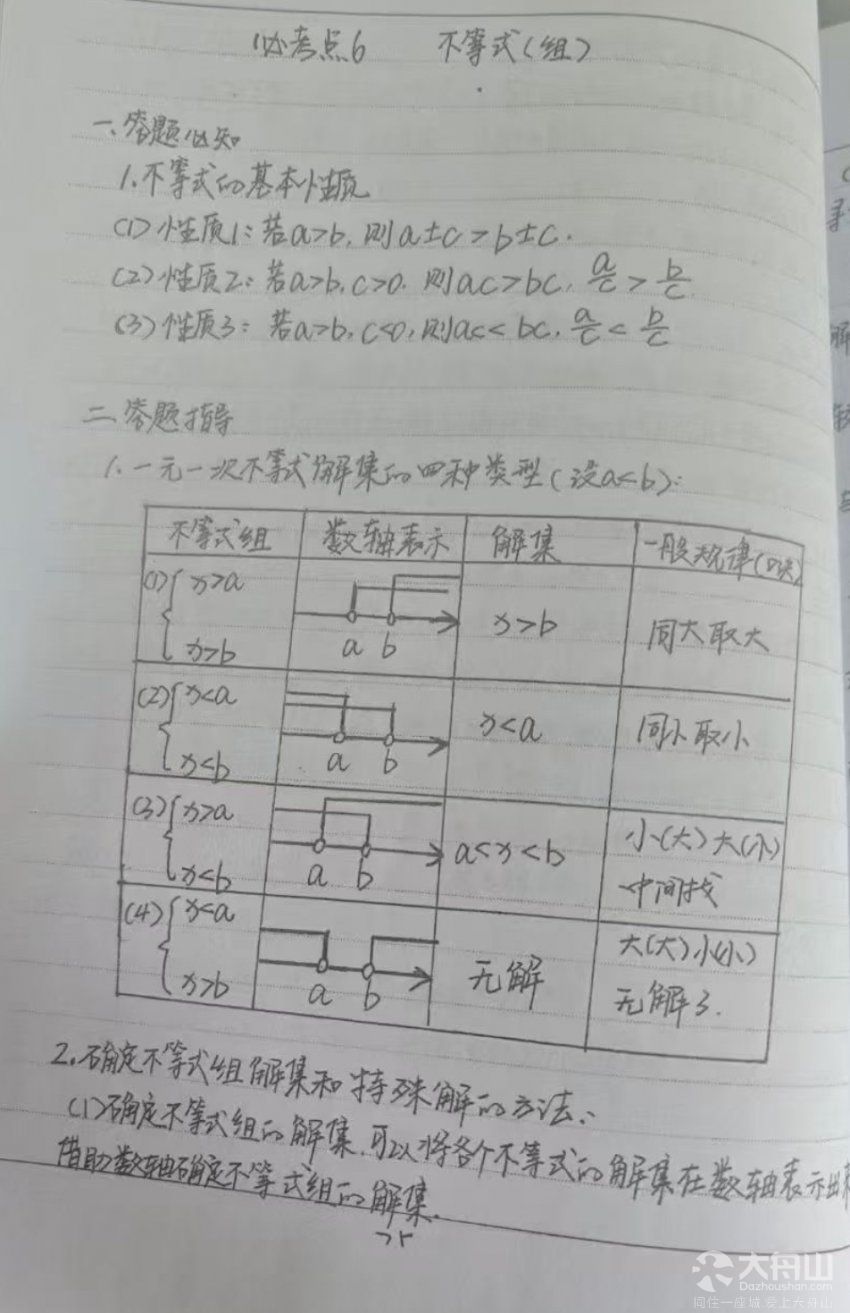 必考点6 不等式(组)
一、答题必知
1.不等式的基本性质
(1)性质1:若a>b,则a±c>b±c.
(2)性质2:若a>b,c>0.则ac>bc,a/c>b/c.
(3)性质3:若a>b,c<0,则ac<bc,a/c<b/c
二.答题指导
1.一元一次不等式解集的四种类型(设a<b):
不等式组 数轴表示 解集 一般规律(口诀)
(1){x>a
x>b a b x>b 同大取大
(2){x<a
x<b a b x<a 同小取小
(3){x>a 小(大)大(小)
x<b a b a<x<b 中间找
(4){x<a 大(大)小(小)
x>b a b 无解 无解了.
2.确定不等式组解集和特殊解的方法:
(1)确定不等式组的解集,可以将各个不等式的解集在数轴表示出来
借助数轴确定不等式组的解集.
大舟山
Dazhoushan.com
同住一座城 爱上大舟山